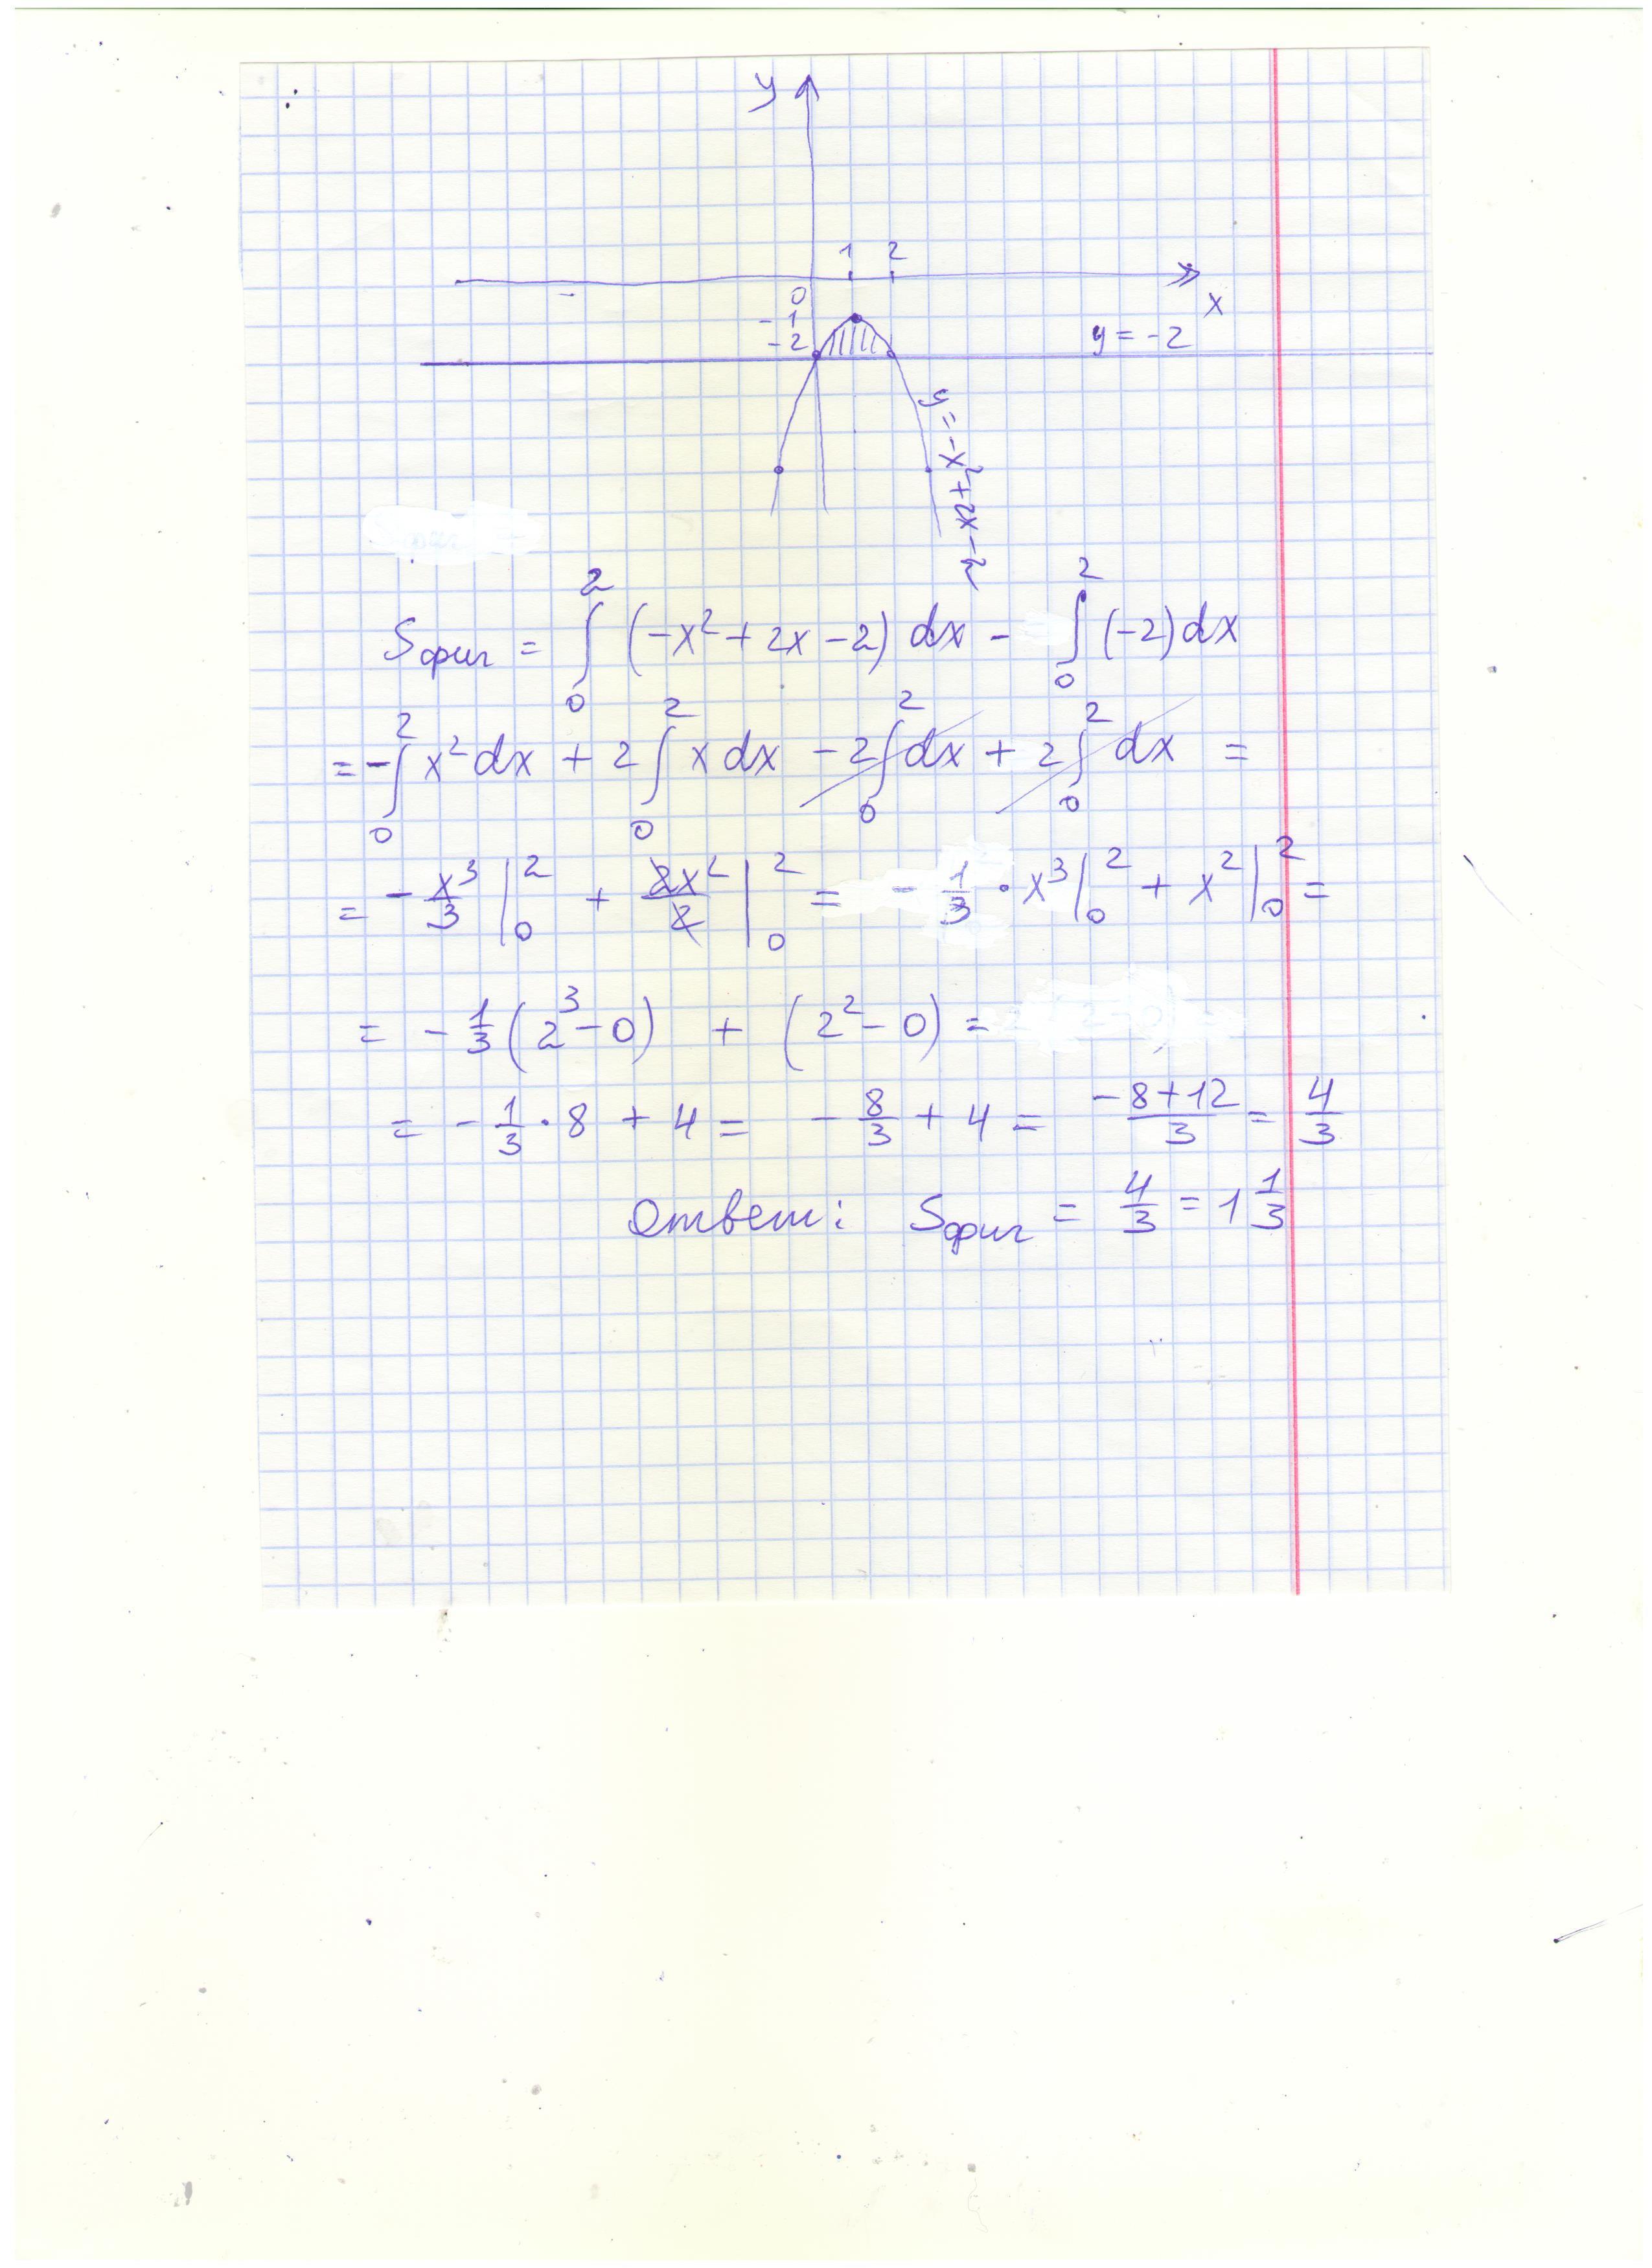 y
1 2
0
x
-1
-2
y = -2
y = -x²+2x-2
Sфиг = ∫₀² (-x² + 2x - 2) dx - ∫₀² (-2) dx
= -∫₀² x² dx + 2∫₀² x dx - 2∫₀² dx + 2∫₀² dx =
= - x³/3 |₀² + 2x²/2 |₀² = - 1/3 · x³ |₀² + x² |₀² =
= - 1/3 (2³ - 0) + (2² - 0) =
= - 1/3 · 8 + 4 = - 8/3 + 4 = (-8+12)/3 = 4/3
Ответ: Sфиг = 4/3 = 1 1/3